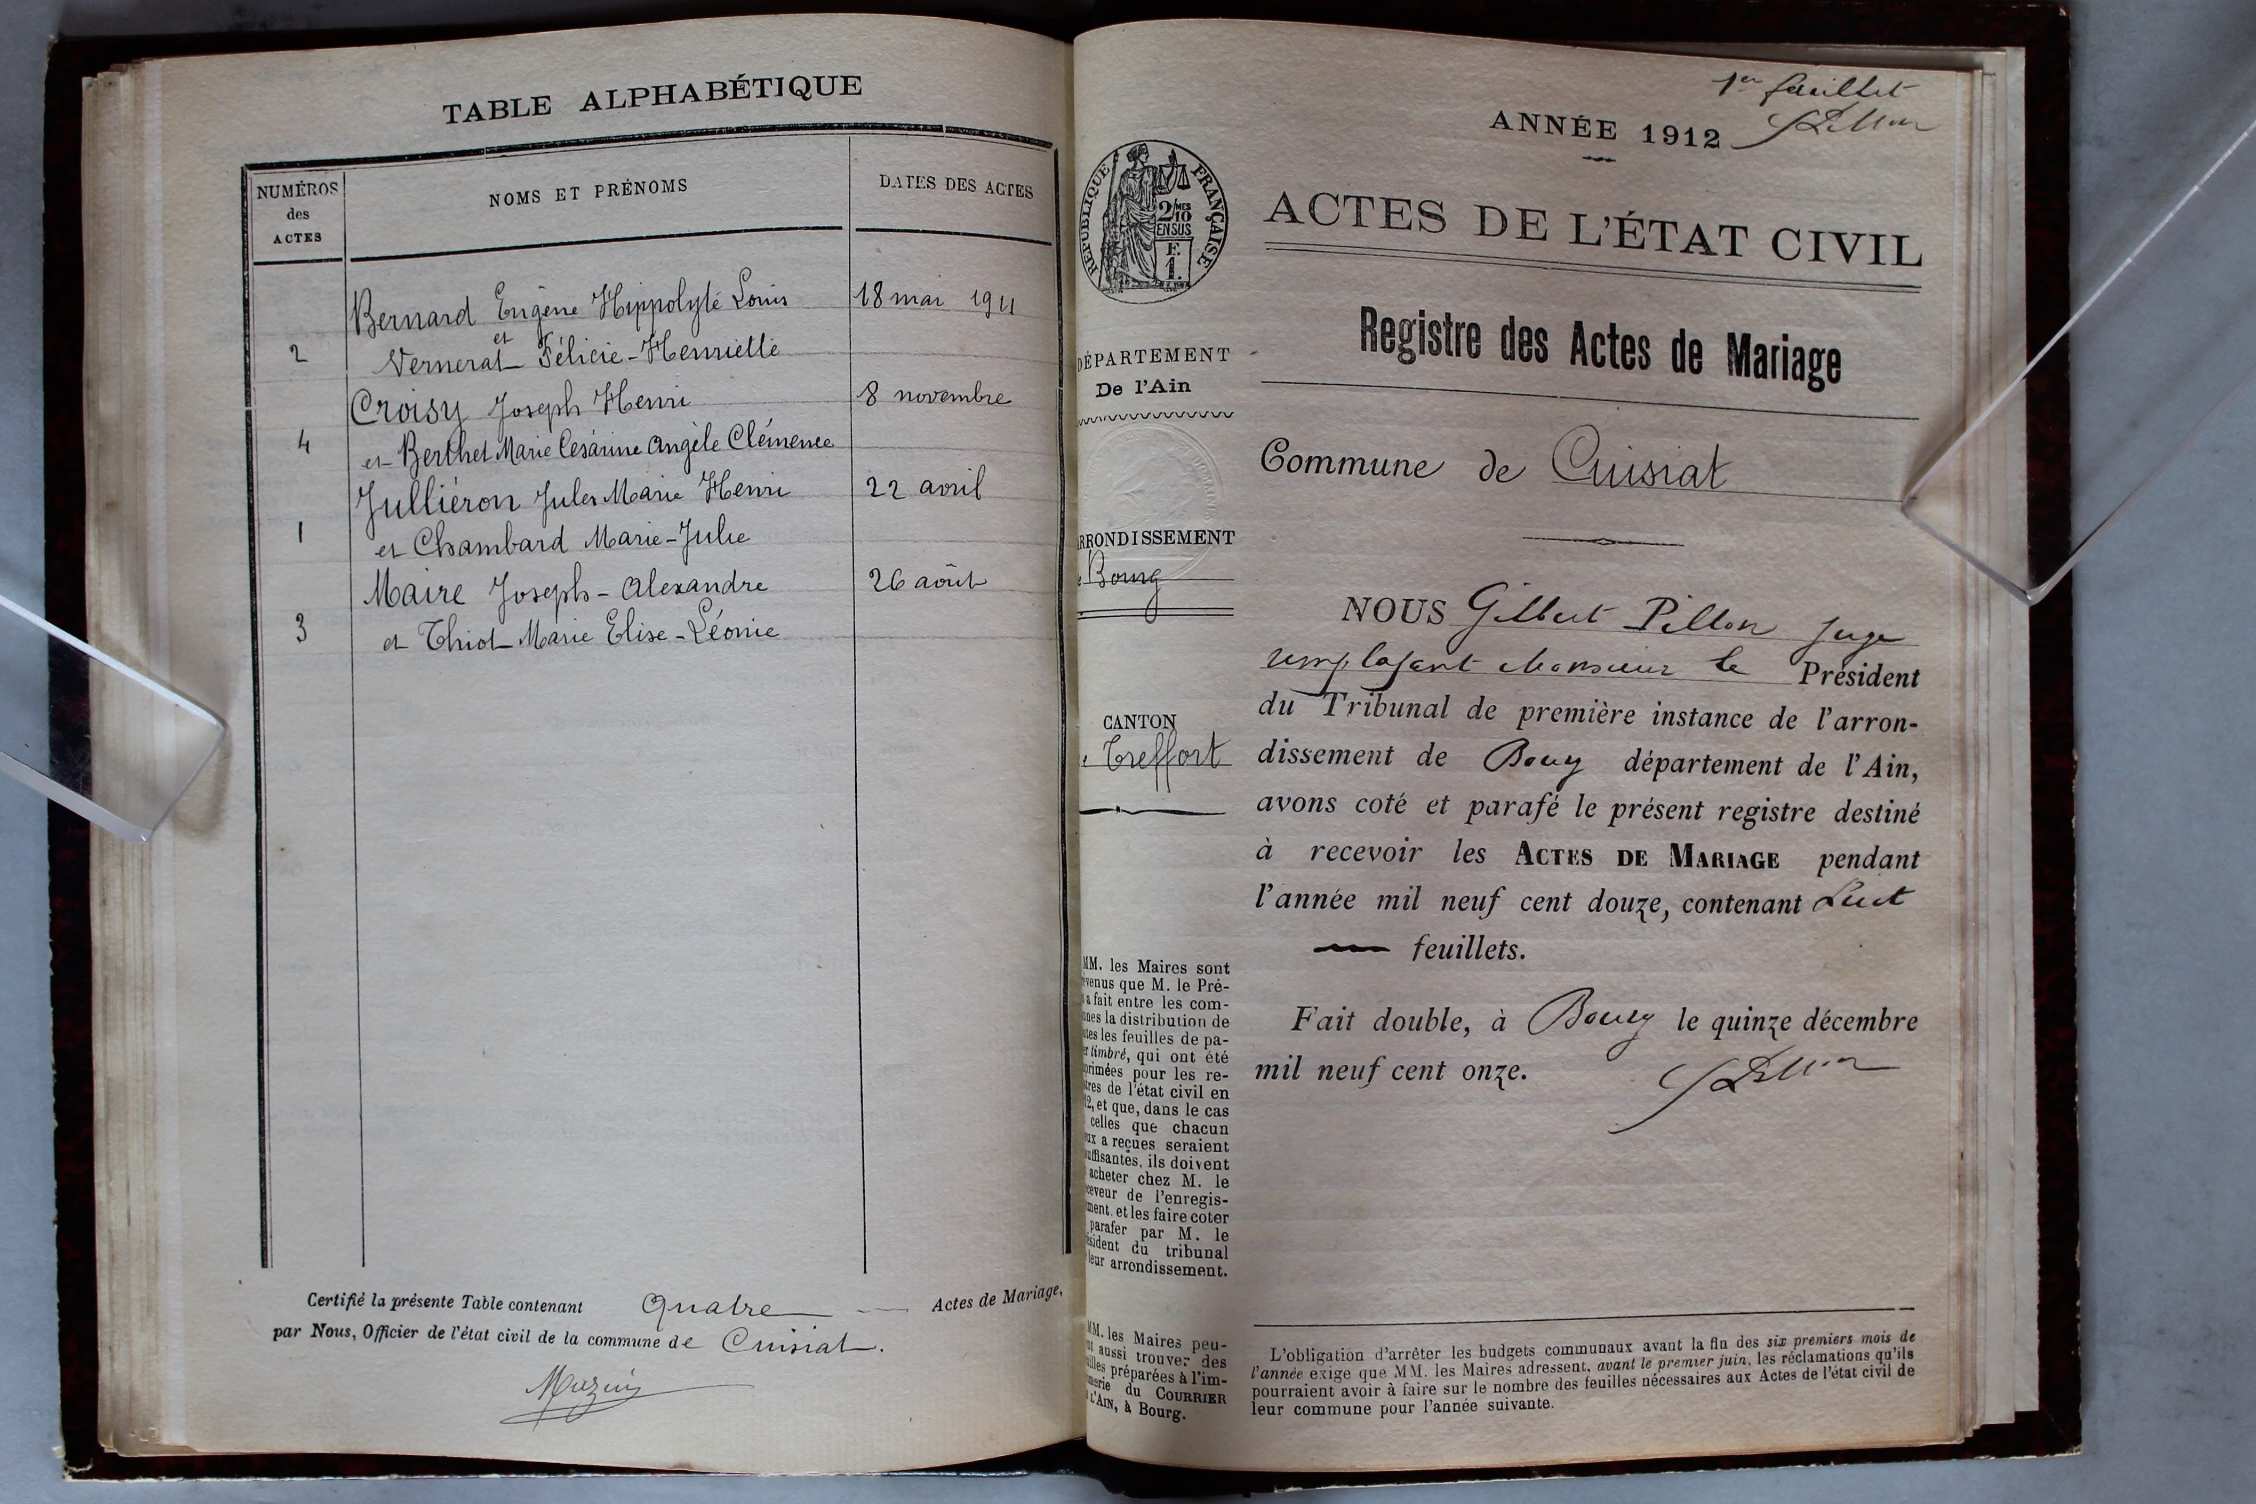 TABLE ALPHABÉTIQUE
NUMÉROS
des
ACTES
NOMS ET PRÉNOMS
DATES DES ACTES
Bernard Eugène Hippolyte Louis
18 mai 1911
et
2
Vernerat Félicie-Henriette
Croisy Joseph Henri
8 novembre
4
et Berthet Marie Césarine Angèle Clémence
Julliéron Jules Marie Henri
22 avril
1
et Chambard Marie-Julie
Maire Joseph-Alexandre
26 août
3
et Thiot Marie Elise-Léonie
Certifié la présente Table contenant Quatre Actes de Mariage,
par Nous, Officier de l'état civil de la commune de Cuisiat.
1er feuillet
ANNÉE 1912
RÉPUBLIQUE FRANÇAISE
2/10 MES
EN SUS
F.
1.
ACTES DE L'ÉTAT CIVIL
Registre des Actes de Mariage
DÉPARTEMENT
De l'Ain
Commune de Cuisiat
ARRONDISSEMENT
Bourg
CANTON
Treffort
NOUS Gilbert Pillon Juge
remplaçant Monsieur le Président
du Tribunal de première instance de l'arron-
dissement de Bourg département de l'Ain,
avons coté et parafé le présent registre destiné
à recevoir les ACTES DE MARIAGE pendant
l'année mil neuf cent douze, contenant huit
feuillets.
Fait double, à Bourg le quinze décembre
mil neuf cent onze.
MM. les Maires sont
venus que M. le Pré-
a fait entre les com-
nes la distribution de
tes les feuilles de pa-
er timbré, qui ont été
primées pour les re-
tres de l'état civil en
12, et que, dans le cas
celles que chacun
ux a reçues seraient
uffisantes, ils doivent
acheter chez M. le
ceveur de l'enregis-
ment, et les faire coter
parafer par M. le
ésident du tribunal
leur arrondissement.
MM. les Maires peu-
t aussi trouver des
illes préparées à l'im-
merie du COURRIER
L'AIN, à Bourg.
L'obligation d'arrêter les budgets communaux avant la fin des six premiers mois de
l'année exige que MM. les Maires adressent, avant le premier juin, les réclamations qu'ils
pourraient avoir à faire sur le nombre des feuilles nécessaires aux Actes de l'état civil de
leur commune pour l'année suivante.